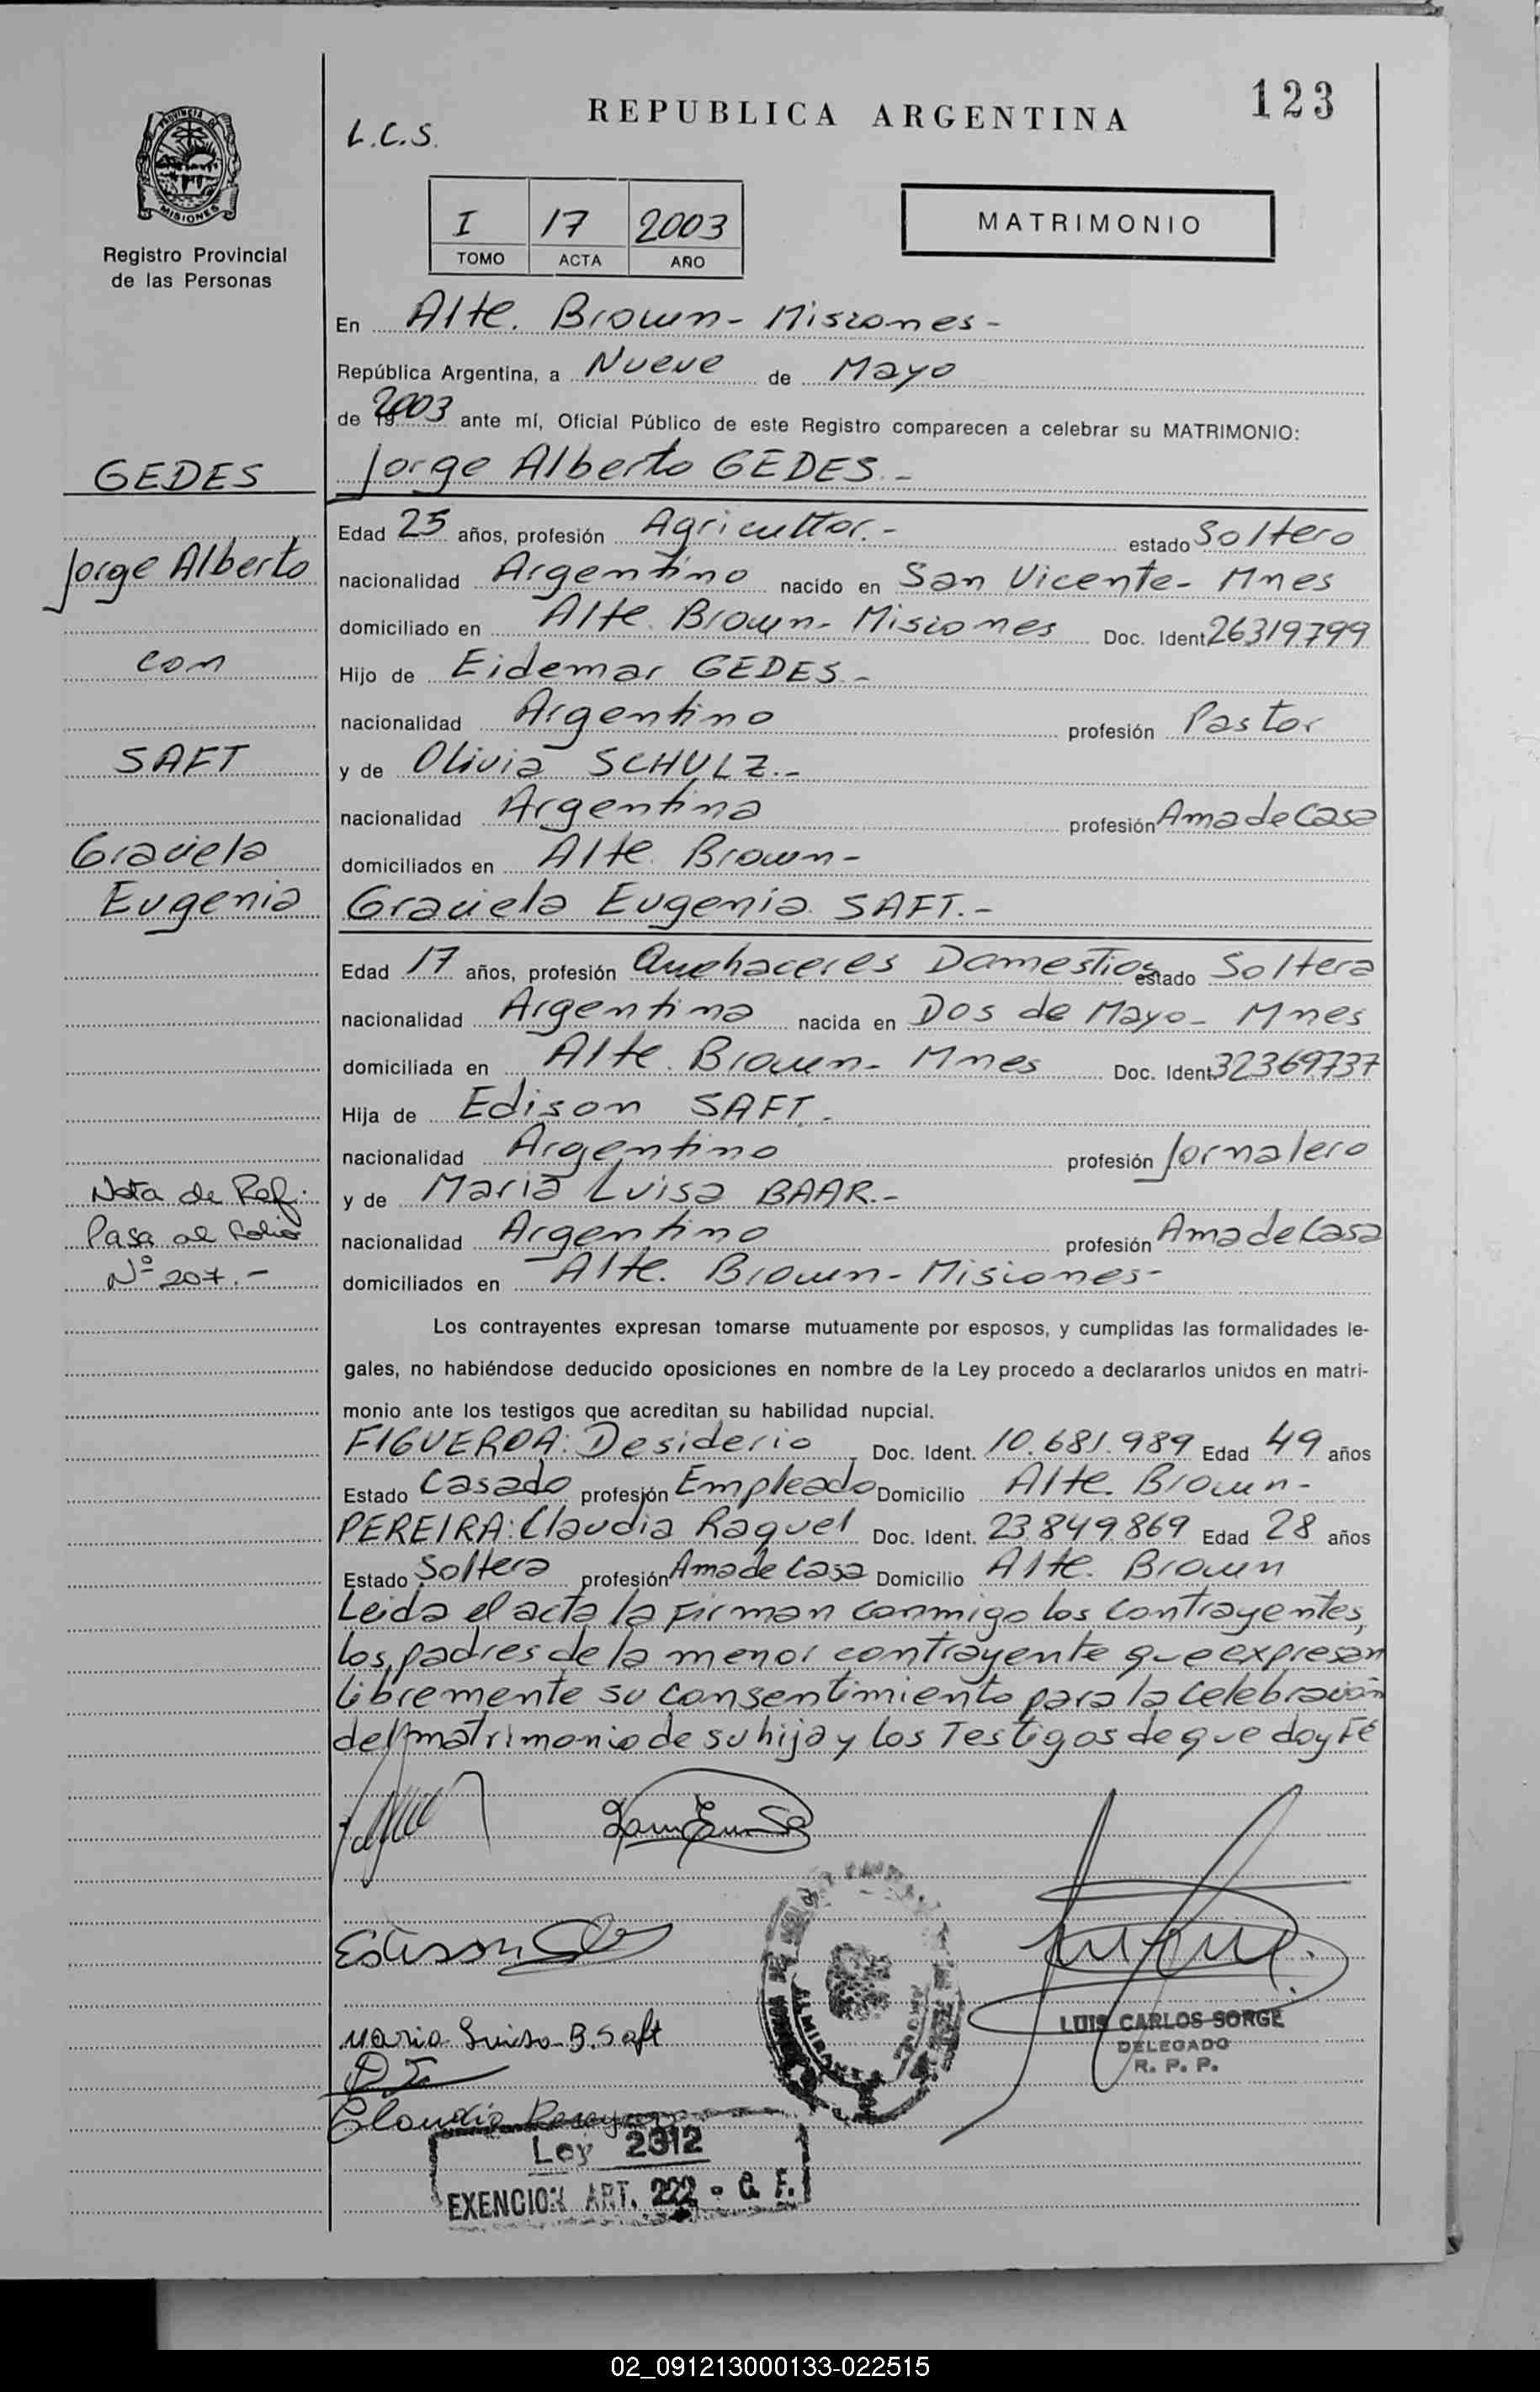 123
REPUBLICA ARGENTINA
L.C.S.
PROVINCIA DE
MISIONES
Registro Provincial
de las Personas
I 17 2003
TOMO ACTA AÑO
MATRIMONIO
En Alte. Brown - Misiones -
República Argentina, a Nueve de Mayo
de 2003 ante mí, Oficial Público de este Registro comparecen a celebrar su MATRIMONIO:
GEDES
Jorge Alberto
con
SAFT
Graciela
Eugenia
Nota de Ref:
Pasa al folio
Nº 207.-
Jorge Alberto GEDES.-
Edad 25 años, profesión Agricultor.- estado Soltero
nacionalidad Argentino nacido en San Vicente - Mnes
domiciliado en Alte. Brown - Misiones Doc. Ident. 26319799
Hijo de Eidemar GEDES.-
nacionalidad Argentino profesión Pastor
y de Olivia SCHULZ.-
nacionalidad Argentina profesión Ama de Casa
domiciliados en Alte. Brown -
Graciela Eugenia SAFT.-
Edad 17 años, profesión Quehaceres Domesticos estado Soltera
nacionalidad Argentina nacida en Dos de Mayo - Mnes
domiciliada en Alte. Brown - Mnes Doc. Ident. 32369737
Hija de Edison SAFT.-
nacionalidad Argentino profesión Jornalero
y de Maria Luisa BAAR.-
nacionalidad Argentino profesión Ama de Casa
domiciliados en Alte. Brown - Misiones -
Los contrayentes expresan tomarse mutuamente por esposos, y cumplidas las formalidades le-
gales, no habiéndose deducido oposiciones en nombre de la Ley procedo a declararlos unidos en matri-
monio ante los testigos que acreditan su habilidad nupcial.
FIGUEROA: Desiderio Doc. Ident. 10.681.989 Edad 49 años
Estado Casado profesión Empleado Domicilio Alte. Brown -
PEREIRA: Claudia Raquel Doc. Ident. 23849869 Edad 28 años
Estado Soltera profesión Ama de Casa Domicilio Alte. Brown
Leida el acta la firman conmigo los contrayentes,
los padres de la menor contrayente que expresan
libremente su consentimiento para la celebracion
del matrimonio de su hija y los Testigos de que doy Fé
Maria Luisa B. Saft
LUIS CARLOS SORGE
DELEGADO
R. P. P.
Ley 2312
EXENCION ART. 222 - C. F.
02_091213000133-022515